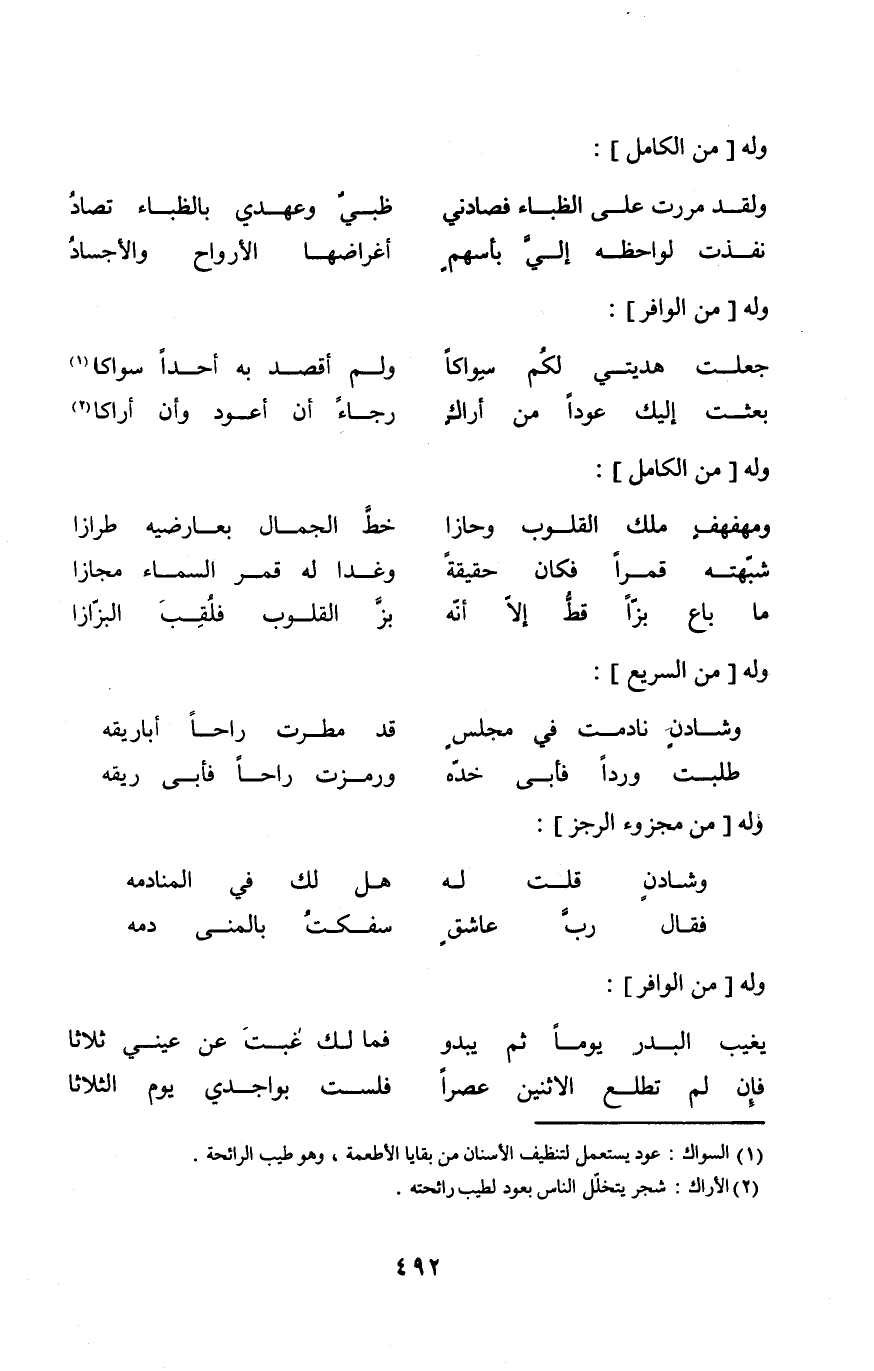 وله [ من الكامل ] :
ولقد مررت على الظباء فصادني ظبيٌ وعهدي بالظباء تصادُ
نفذت لواحظه إليَّ بأسهمٍ أغراضها الأرواح والأجسادُ
وله [ من الوافر ] :
جعلت هديتي لكُم سِواكاً ولم أقصد به أحداً سواكا(١)
بعثت إليك عوداً من أراكٍ رجاءً أن أعود وأن أراكا(٢)
وله [ من الكامل ] :
ومهفهفٍ ملك القلوب وحازا خطَّ الجمال بعارضيه طرازا
شبّهته قمراً فكان حقيقةً وغدا له قمر السماء مجازا
ما باع بزّاً قطُّ إلاّ أنّه بزَّ القلوب فلُقِبَ البزّازا
وله [ من السريع ] :
وشادنٍ نادمت في مجلسٍ قد مطرت راحاً أباريقه
طلبت ورداً فأبى خدّه ورمزت راحاً فأبى ريقه
وله [ من مجزوء الرجز ] :
وشادنٍ قلت له هل لك في المنادمه
فقال ربَّ عاشقٍ سفكتُ بالمنى دمه
وله [ من الوافر ] :
يغيب البدر يوماً ثم يبدو فما لك غبتَ عن عيني ثلاثا
فإن لم تطلع الاثنين عصراً فلست بواجدي يوم الثلاثا
(١) السواك : عود يستعمل لتنظيف الأسنان من بقايا الأطعمة ، وهو طيب الرائحة .
(٢) الأراك : شجر يتخلّل الناس بعود لطيب رائحته .
٤٩٢